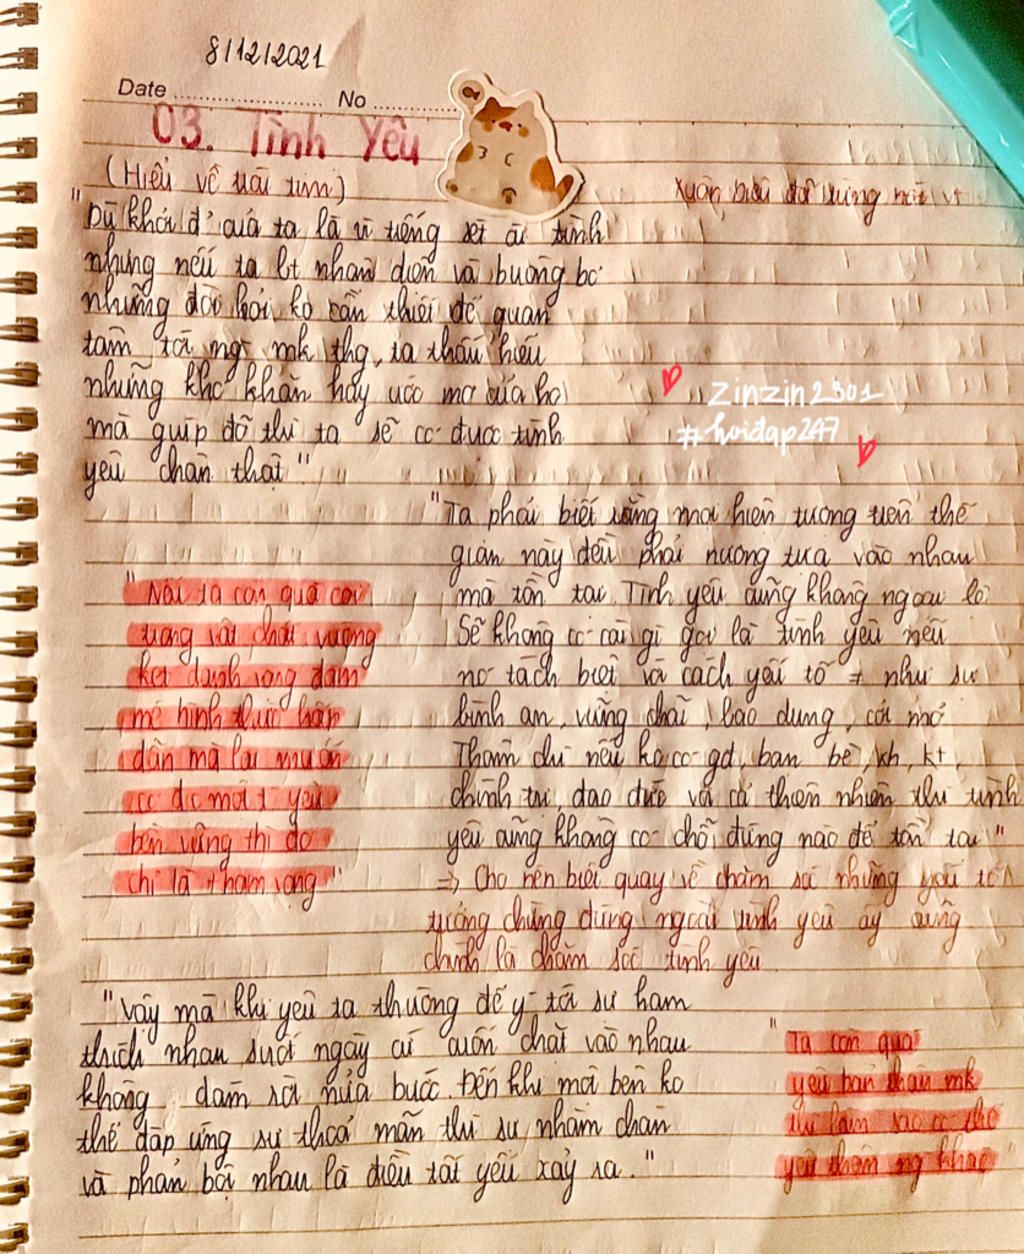 8/12/2021
Date No
03. Tình Yêu
(Hiểu về trái tim)
"Dù khởi đ' của ta là vì tiếng sét ái tình
nhưng nếu ta bt nhận diện và buông bỏ
những đòi hỏi ko cần thiết để quan
tâm tới ng` mk thg, ta thấu hiểu
những khó khăn hay ước mơ của họ
mà giúp đỡ thì ta sẽ có được tình
yêu chân thật"
zinzin2301
#hoidap247
"Ta phải biết rằng mọi hiện tượng trên thế
gian này đều phải nương tựa vào nhau
mà tồn tại. Tình yêu cũng không ngoại lệ
Sẽ không có cái gì gọi là tình yêu nếu
nó tách biệt với cách yếu tố ≠ như sự
bình an, vững chãi, bao dung, cởi mở
Thậm chí nếu ko có gđ, bạn bè, kh, kt,
chính trị, đạo đức và cả thiên nhiên thì tình
yêu cũng không có chỗ đứng nào để tồn tại"
=> Cho nên biết quay về chăm sóc những yếu tố
tưởng chừng đứng ngoài tình yêu ấy cũng
chính là chăm sóc tình yêu
"Nếu ta còn quá coi
trọng vật chất, vướng
kẹt danh vọng đam
mê hình thức hấp
dẫn mà lại muốn
có đc một t` yêu
bền vững thì đó
chỉ là tham vọng"
"Vậy mà khi yêu ta thường để ý tới sự ham
thích nhau suốt ngày cứ cuốn chặt vào nhau
không dám rời nửa bước. Đến khi mỗi bên ko
thể đáp ứng sự thoả mãn thì sự nhàm chán
và phản bội nhau là điều tất yếu xảy ra."
"Ta còn quá
yêu bản thân mk
thì làm sao có thể
yêu thêm ng khác"